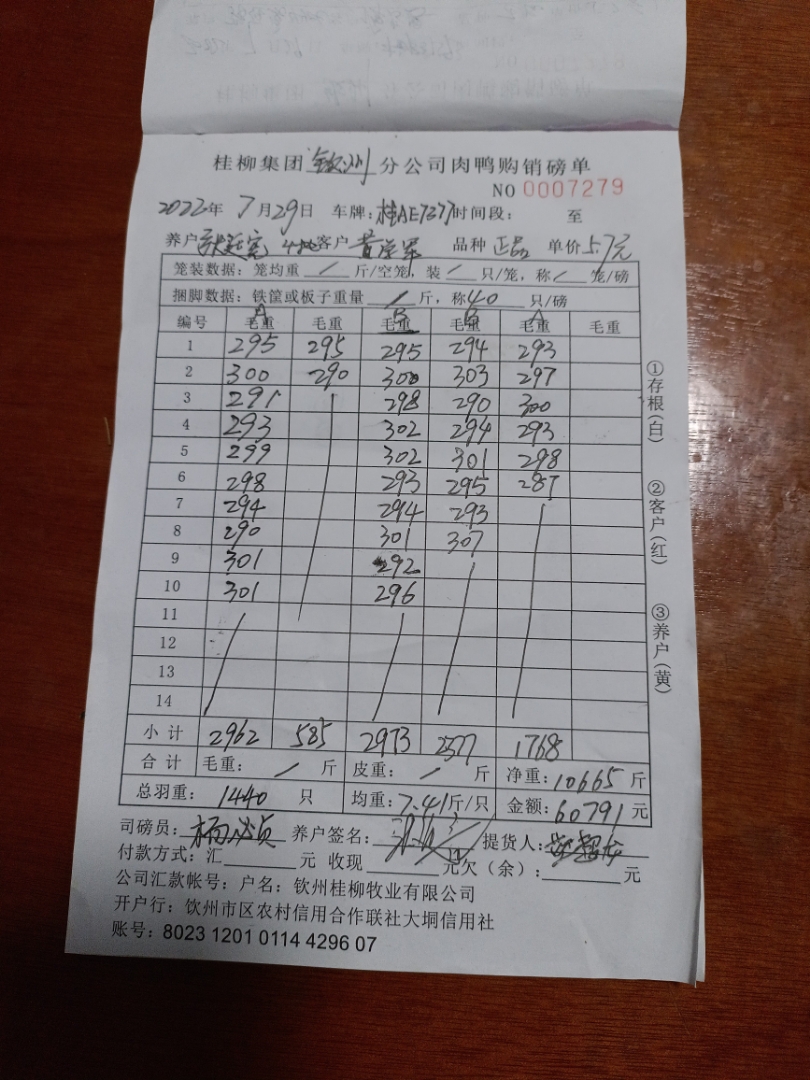 桂柳集团 钦州 分公司肉鸭购销磅单
NO 0007279
2022年 7月29日 车牌:桂AE7377时间段: 至
养户 客户 黄 品种 正品 单价5.7元
笼装数据: 笼均重 / 斤/空笼, 装 / 只/笼, 称 / 笼/磅
捆脚数据: 铁筐或板子重量 / 斤, 称40 只/磅
A B B A
编号 毛重 毛重 毛重 毛重 毛重 毛重
1 295 295 295 294 293
2 300 290 300 303 297
3 291 298 290 300
4 293 302 294 293
5 299 302 301 298
6 298 293 295 287
7 294 294 293
8 290 301 307
9 301 292
10 301 296
11
12
13
14
小计 2962 585 2973 2377 1768
合计 毛重: / 斤 皮重: / 斤 净重:10665斤
总羽重: 1440 只 均重:7.41斤/只 金额:60791元
司磅员: 杨 养户签名: 提货人:
付款方式: 汇 元 收现 元欠(余): 元
公司汇款帐号: 户名: 钦州桂柳牧业有限公司
开户行: 钦州市区农村信用合作联社大垌信用社
账号: 8023 1201 0114 4296 07
①存根(白)
②客户(红)
③养户(黄)